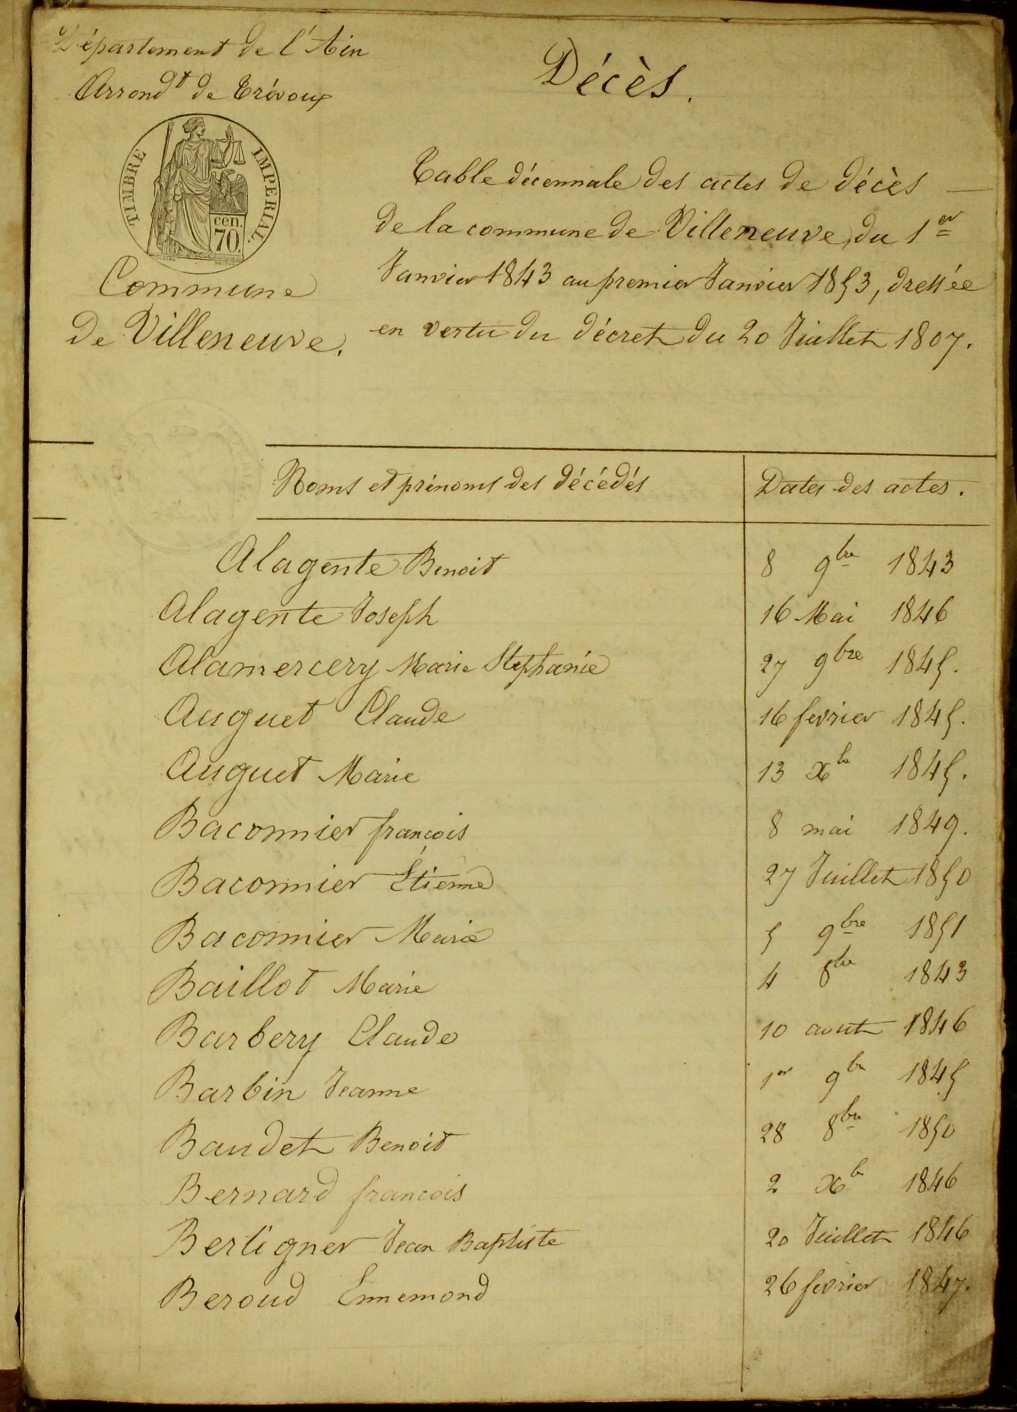 Département de l'Ain
Arrondt de Trévoux
TIMBRE IMPERIAL
cen.
70
Commune
de Villeneuve.
Décès.
Table décennale des actes de décès
de la commune de Villeneuve, du 1er
Janvier 1843 au premier Janvier 1853, dressée
en vertu du décret du 20 Juillet 1807.
Noms et prénoms des décédés Dates des actes.
Alagente Benoit 8 9bre 1843
Alagente Joseph 16 Mai 1846
Alamercery Marie Stephanie 27 9bre 1845.
Auguet Claude 16 fevrier 1845.
Auguet Marie 13 xbre 1845.
Baconnier françois 8 mai 1849.
Baconnier Étienne 27 Juillet 1850
Baconnier Marie 5 9bre 1851
Baillot Marie 4 8bre 1843
Barbery Claude 10 aout 1846
Barbin Jeanne 1er 9bre 1845
Baudet Benoit 28 8bre 1850
Bernard francois 2 xbre 1846
Berligner Jean Baptiste 20 Juillet 1846
Beroud Ennemond 26 fevrier 1847.